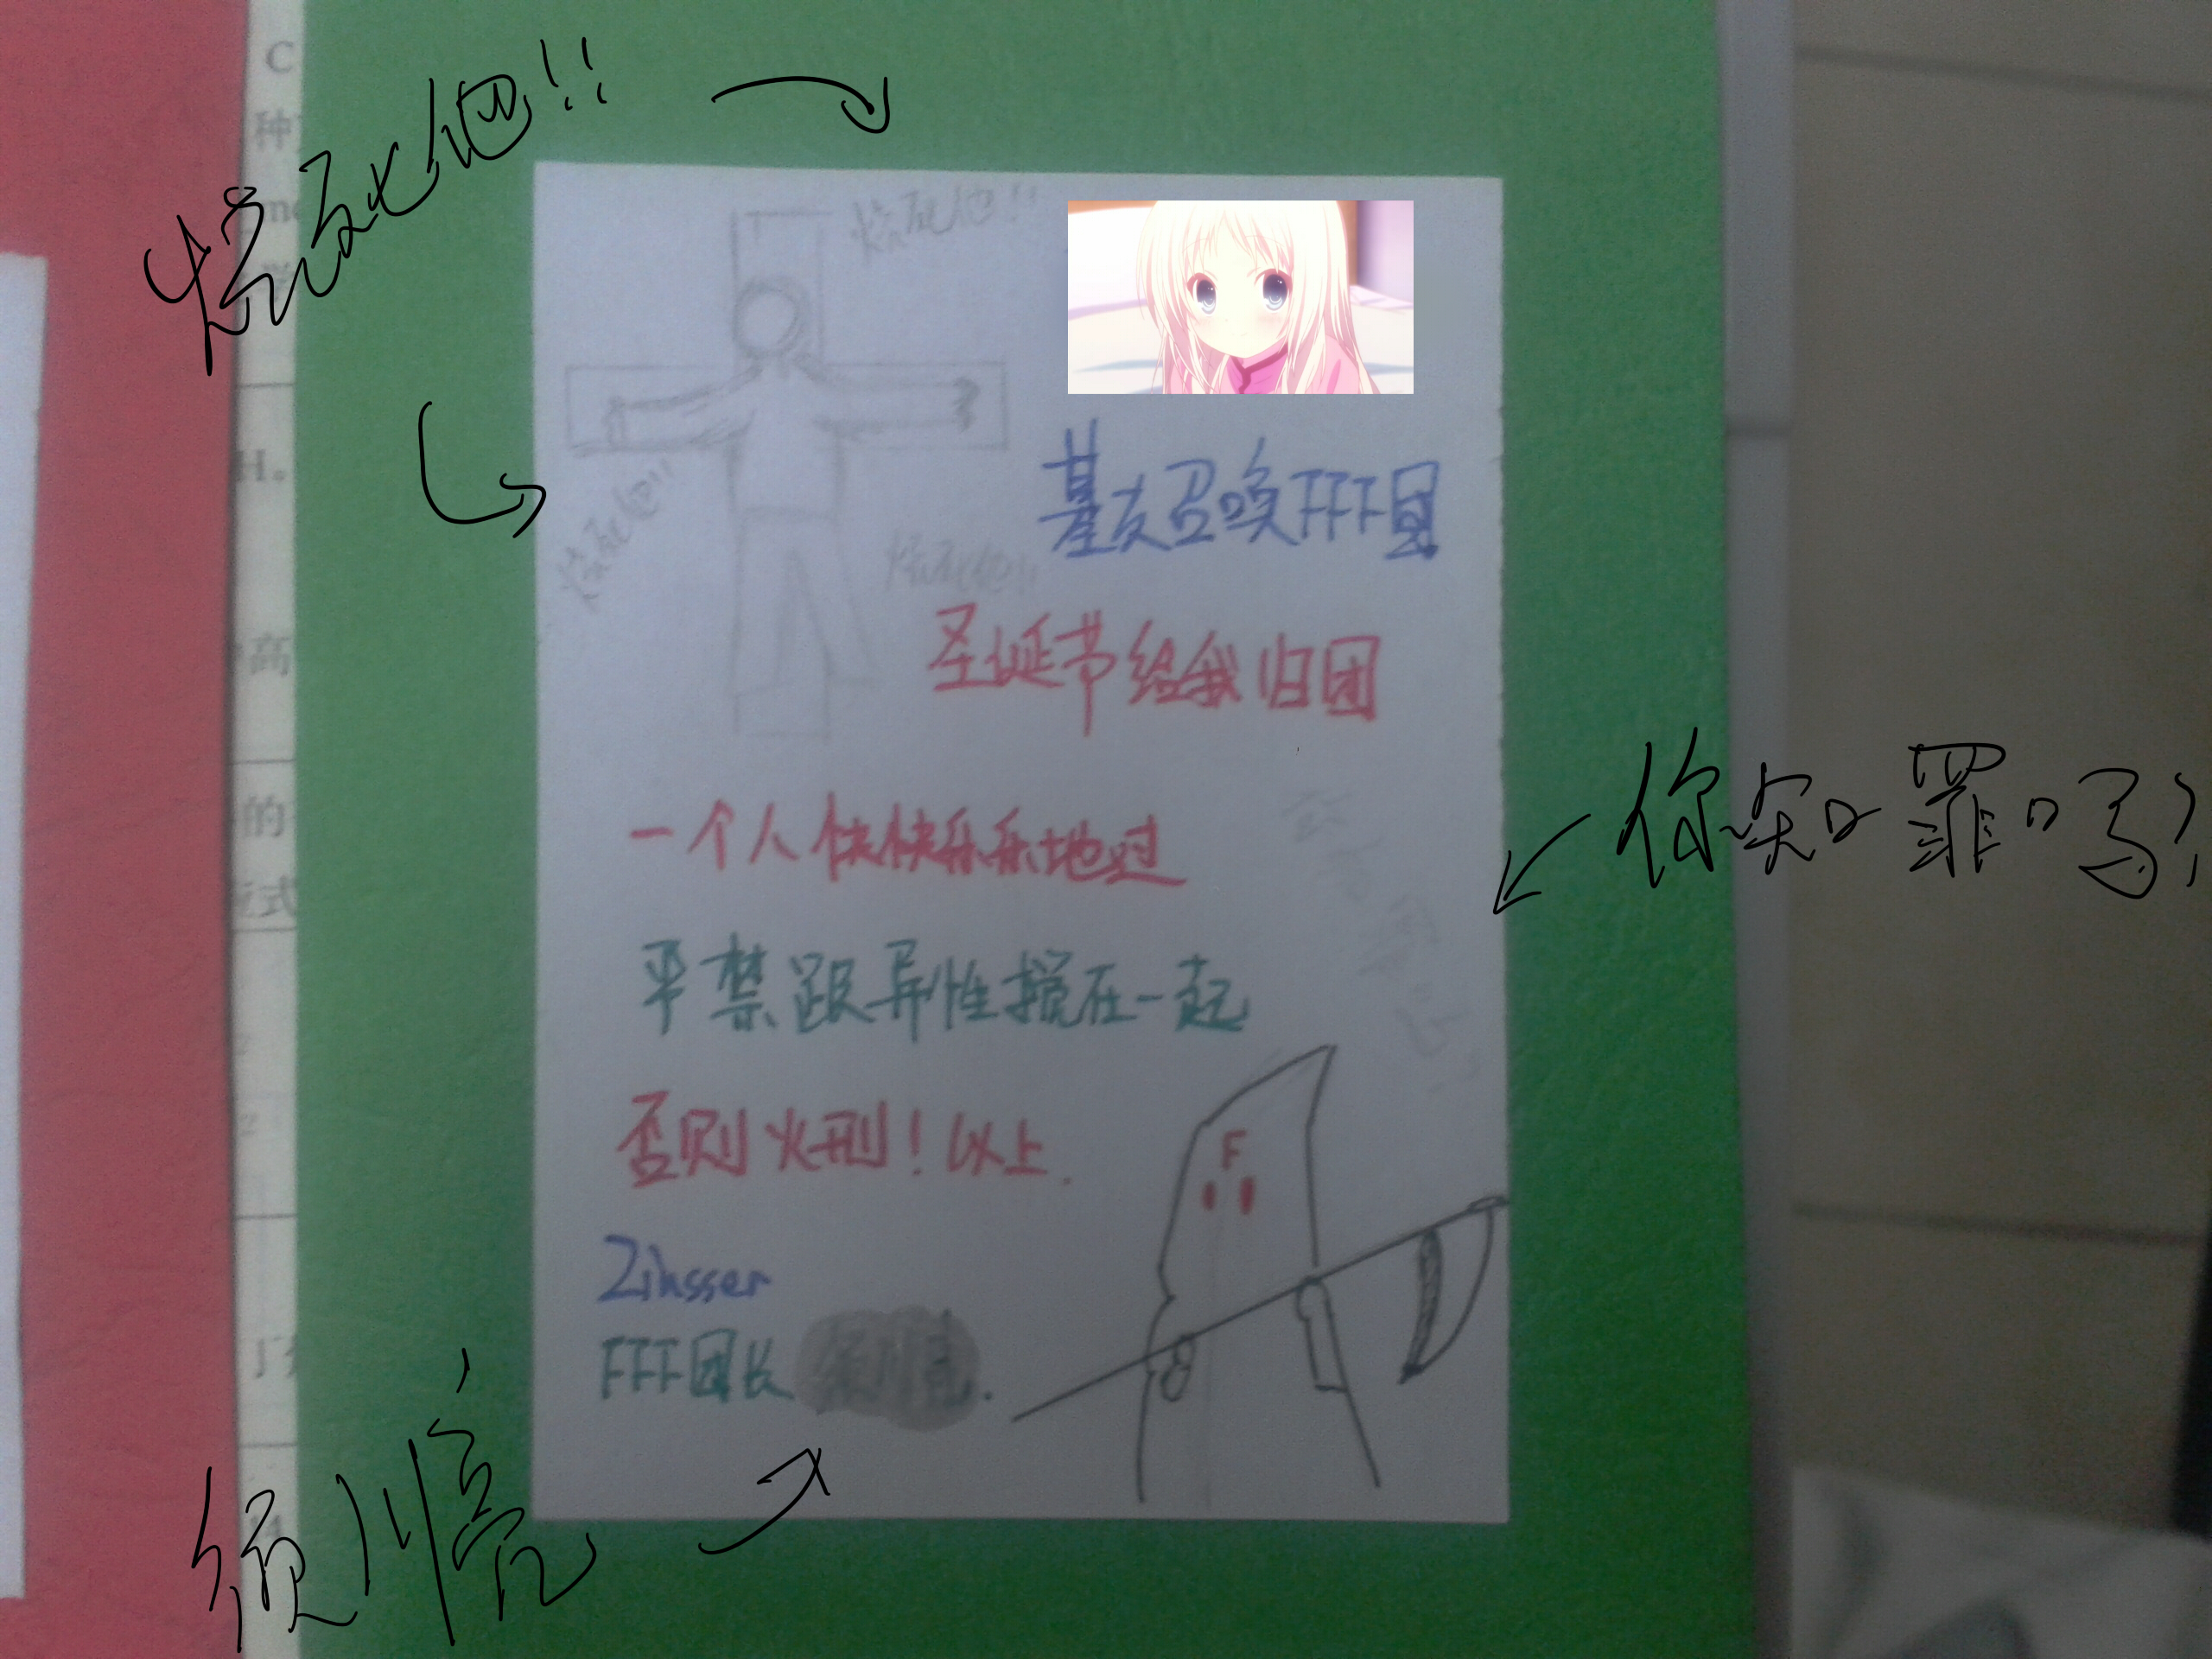 烧死他!!
烧死他!!
基友召唤FFF团
烧死他!!
烧死他!!
圣诞节给我归团
一个人快快乐乐地过
你知罪吗?
严禁跟异性搅在一起
否则火刑!以上.
F
Zinsser
FFF团长 须川亮.
须川亮
C
种
H。
高
的
应式